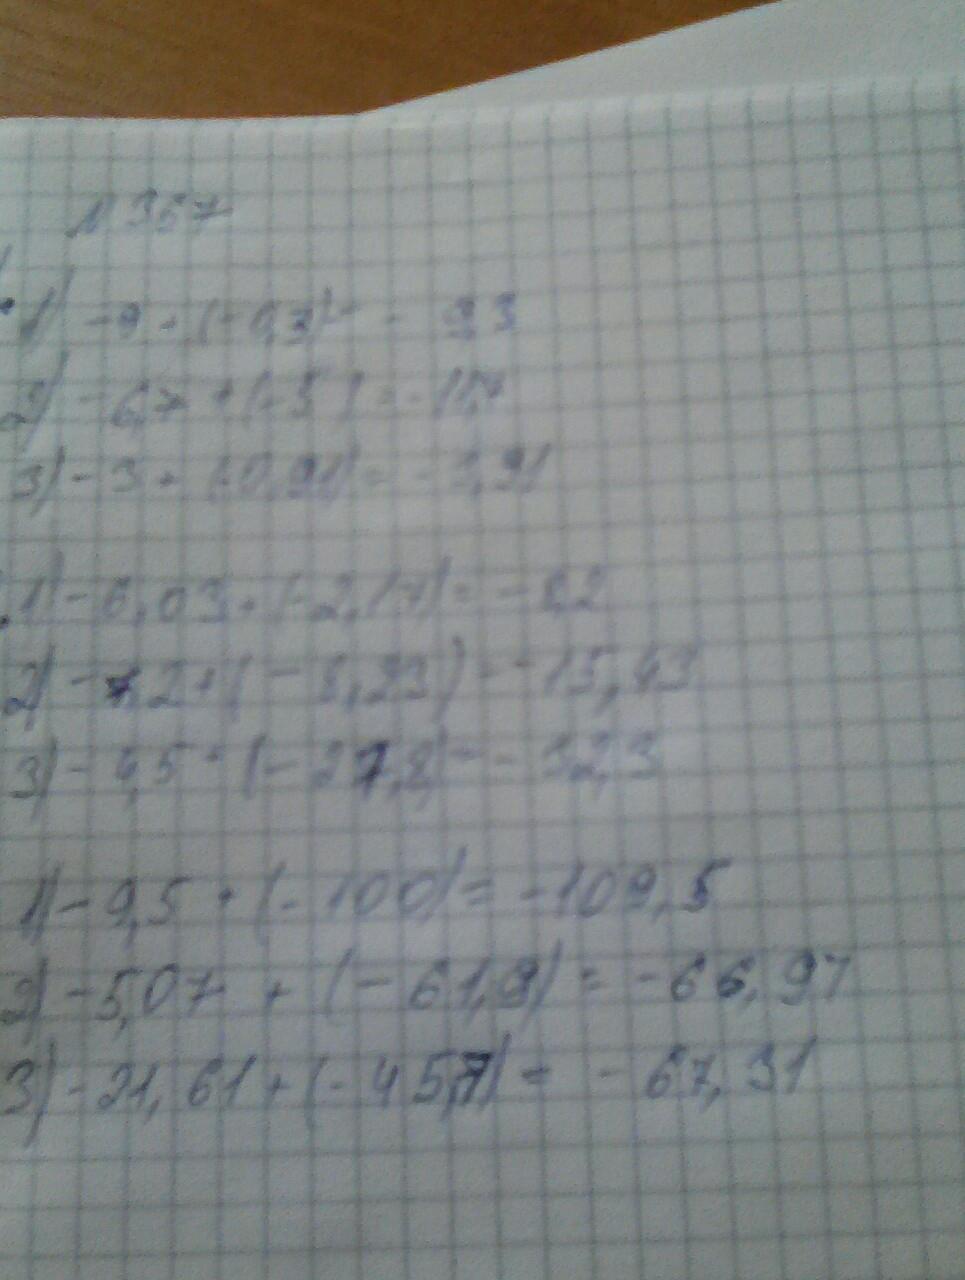 № 367
1) -9 + (-0,3) = - 9,3
2) -6,7 + (-5) = -11,7
3) - 3 + (-0,91) = -3,91
1) -6,03 + (-2,17) = -8,2
2) -7,2 + (- 8,23) = -15,43
3) - 4,5 + (-27,8) = - 32,3
1) -9,5 + (-100) = -109,5
2) -5,07 + (-61,9) = -66,97
3) -21,61 + (-45,7) = - 67,31